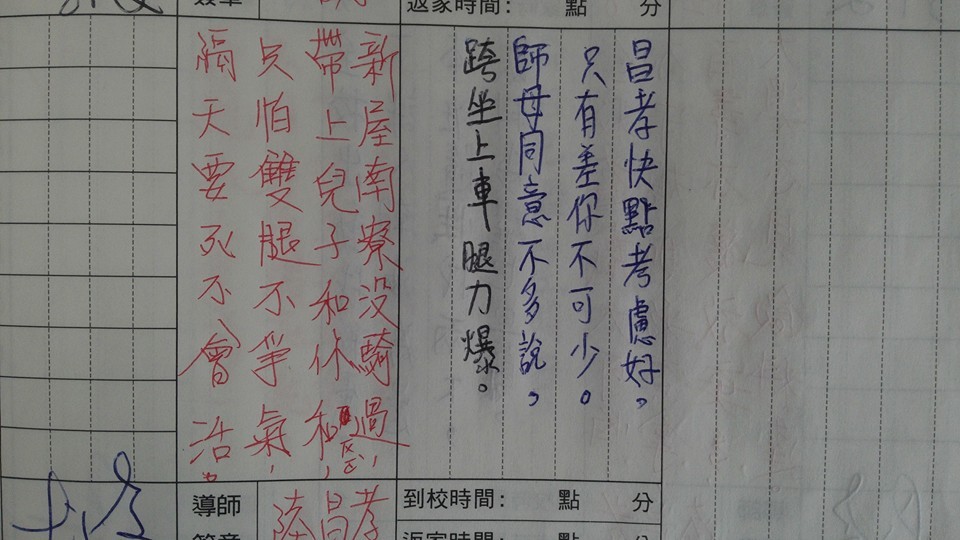 返家時間: 點 分
昌孝快點考慮好,
只有差你不可少。
師母同意不多說,
跨坐上車腿力爆。
新屋南寮没騎過,
帶上兒子和休和,
只怕雙腿不爭氣,
隔天要死不會活。
到校時間: 點 分
導師
陸昌孝
返家時間: 點 分